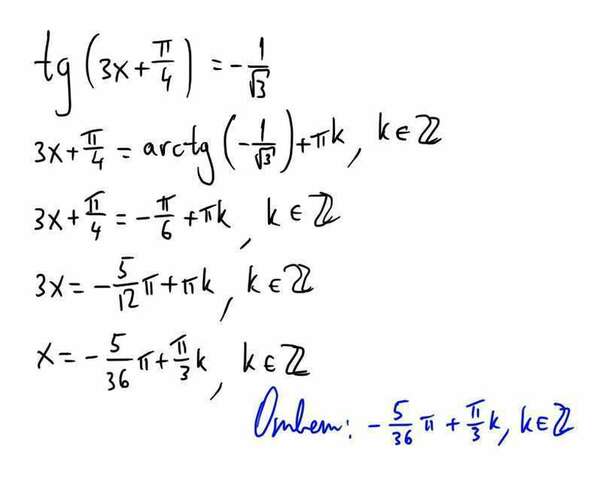 tg(3x+π/4) = -1/√3
3x+π/4 = arctg(-1/√3)+πk, k∈ℤ
3x+π/4 = -π/6+πk, k∈ℤ
3x = -5/12π+πk, k∈ℤ
x = -5/36π+π/3k, k∈ℤ
Ответ: -5/36π+π/3k, k∈ℤ